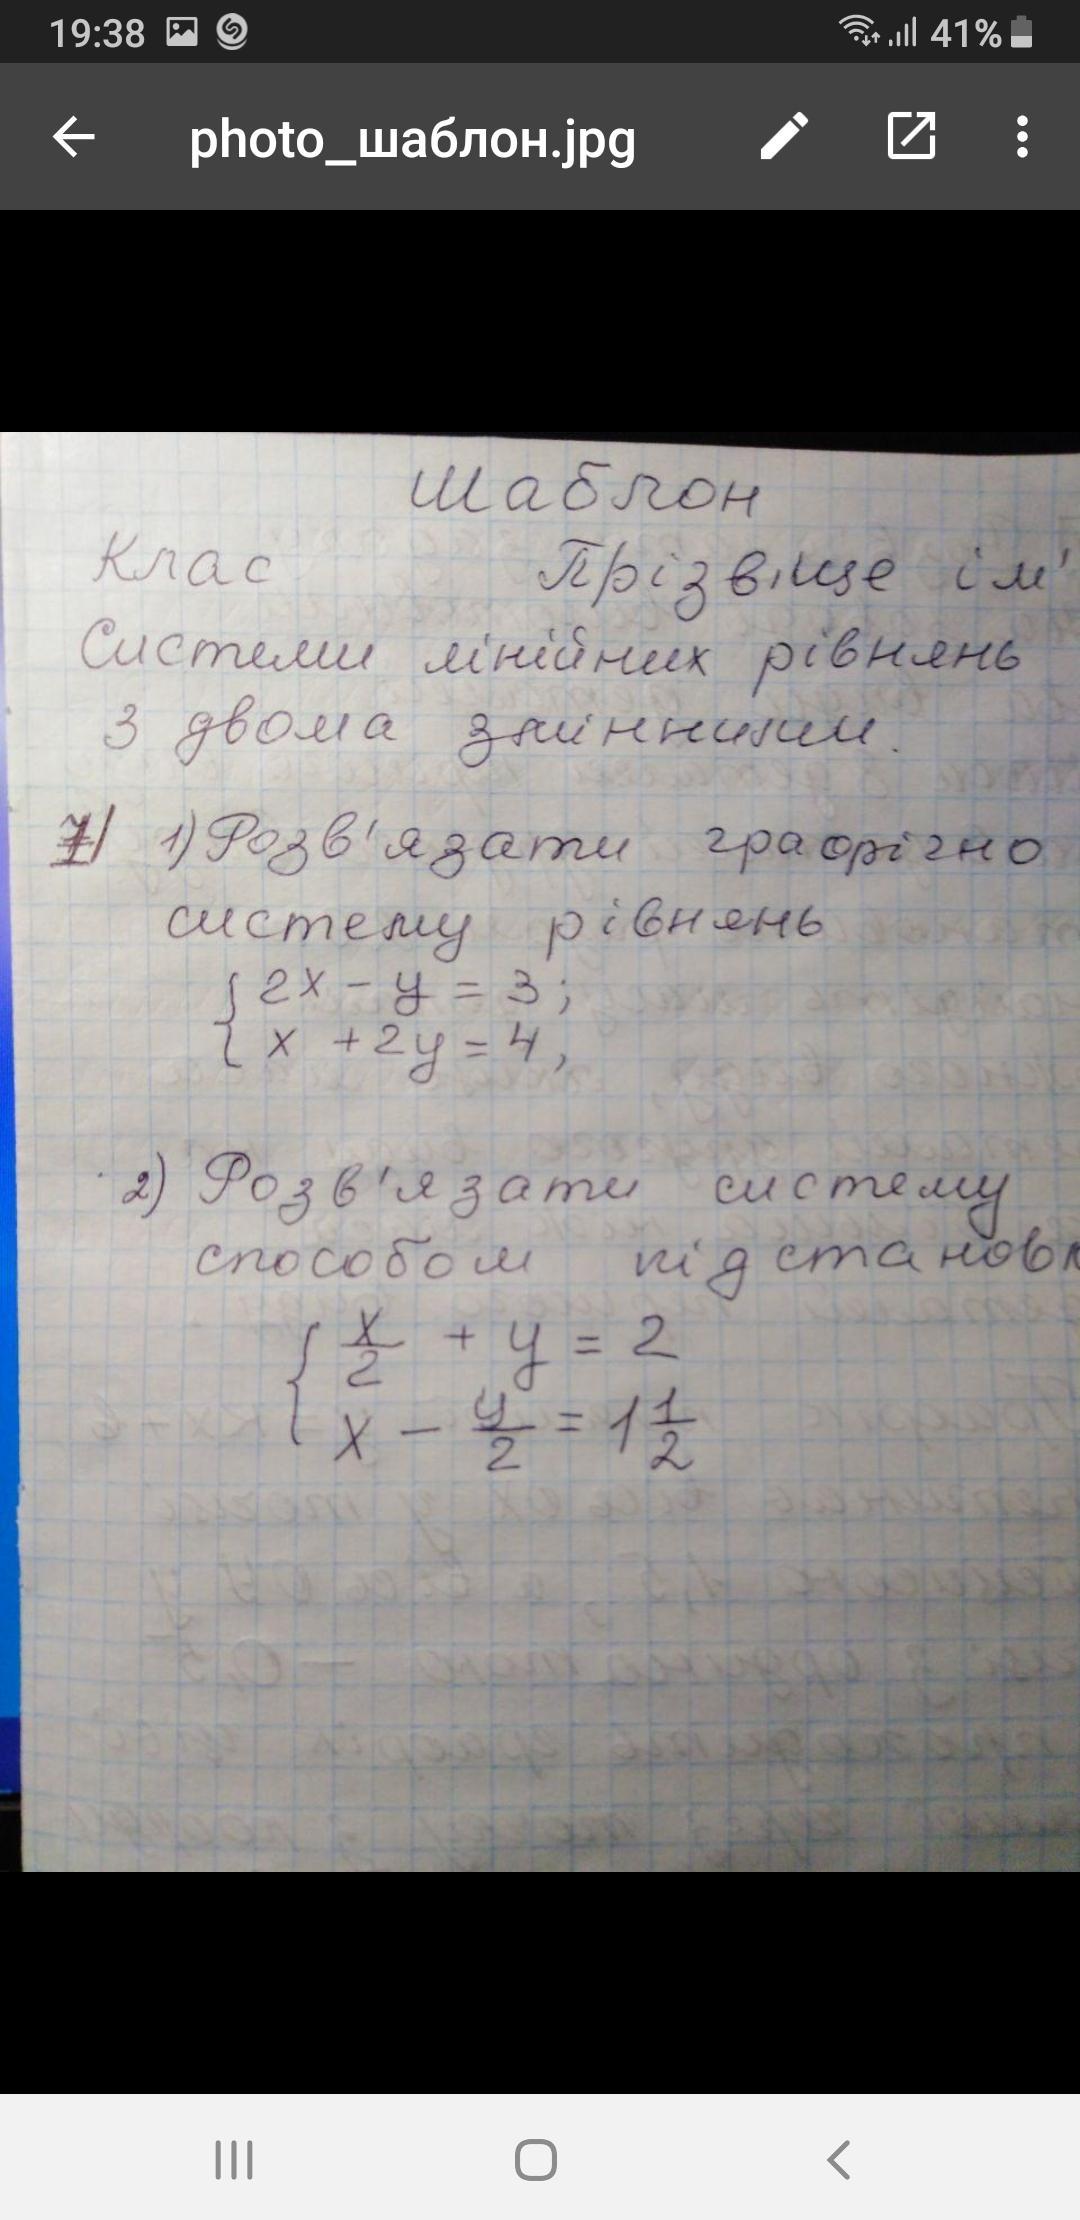 19:38 41%
photo_шаблон.jpg
Шаблон
Клас Прізвище ім'
Системи лінійних рівнянь
з двома змінними.
1) Розв'язати графічно
систему рівнянь
{ 2x - y = 3;
x + 2y = 4,
2) Розв'язати систему
способом підстановк
{ x/2 + y = 2
x - y/2 = 1 1/2